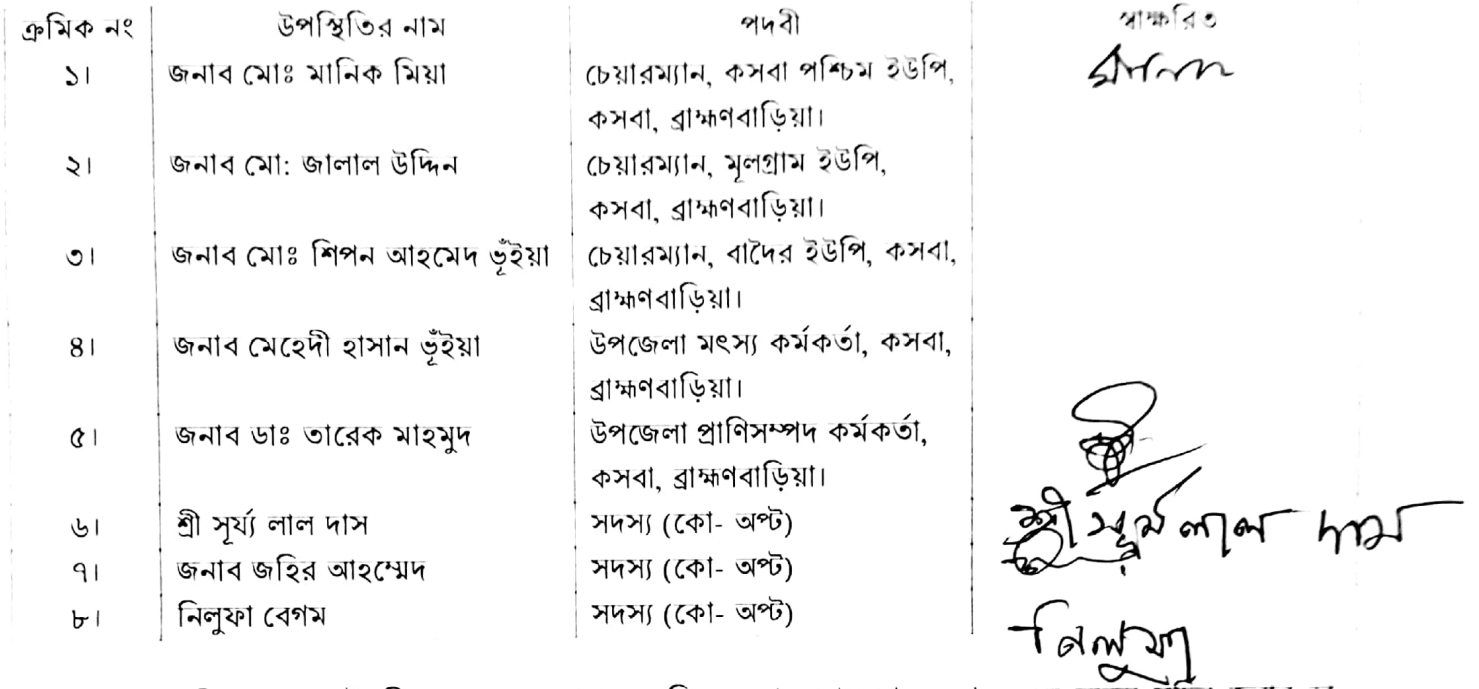 ক্রমিক নং উপস্থিতির নাম পদবী স্বাক্ষরিত
১। জনাব মোঃ মানিক মিয়া চেয়ারম্যান, কসবা পশ্চিম ইউপি, মানিক
কসবা, ব্রাহ্মণবাড়িয়া।
২। জনাব মো: জালাল উদ্দিন চেয়ারম্যান, মূলগ্রাম ইউপি,
কসবা, ব্রাহ্মণবাড়িয়া।
৩। জনাব মোঃ শিপন আহমেদ ভূঁইয়া চেয়ারম্যান, বাদৈর ইউপি, কসবা,
ব্রাহ্মণবাড়িয়া।
৪। জনাব মেহেদী হাসান ভূঁইয়া উপজেলা মৎস্য কর্মকর্তা, কসবা,
ব্রাহ্মণবাড়িয়া।
৫। জনাব ডাঃ তারেক মাহমুদ উপজেলা প্রাণিসম্পদ কর্মকর্তা,
কসবা, ব্রাহ্মণবাড়িয়া।
৬। শ্রী সূর্য্য লাল দাস সদস্য (কো- অপ্ট) শ্রী সূর্য লাল দাস
৭। জনাব জহির আহম্মেদ সদস্য (কো- অপ্ট)
৮। নিলুফা বেগম সদস্য (কো- অপ্ট) নিলুফা